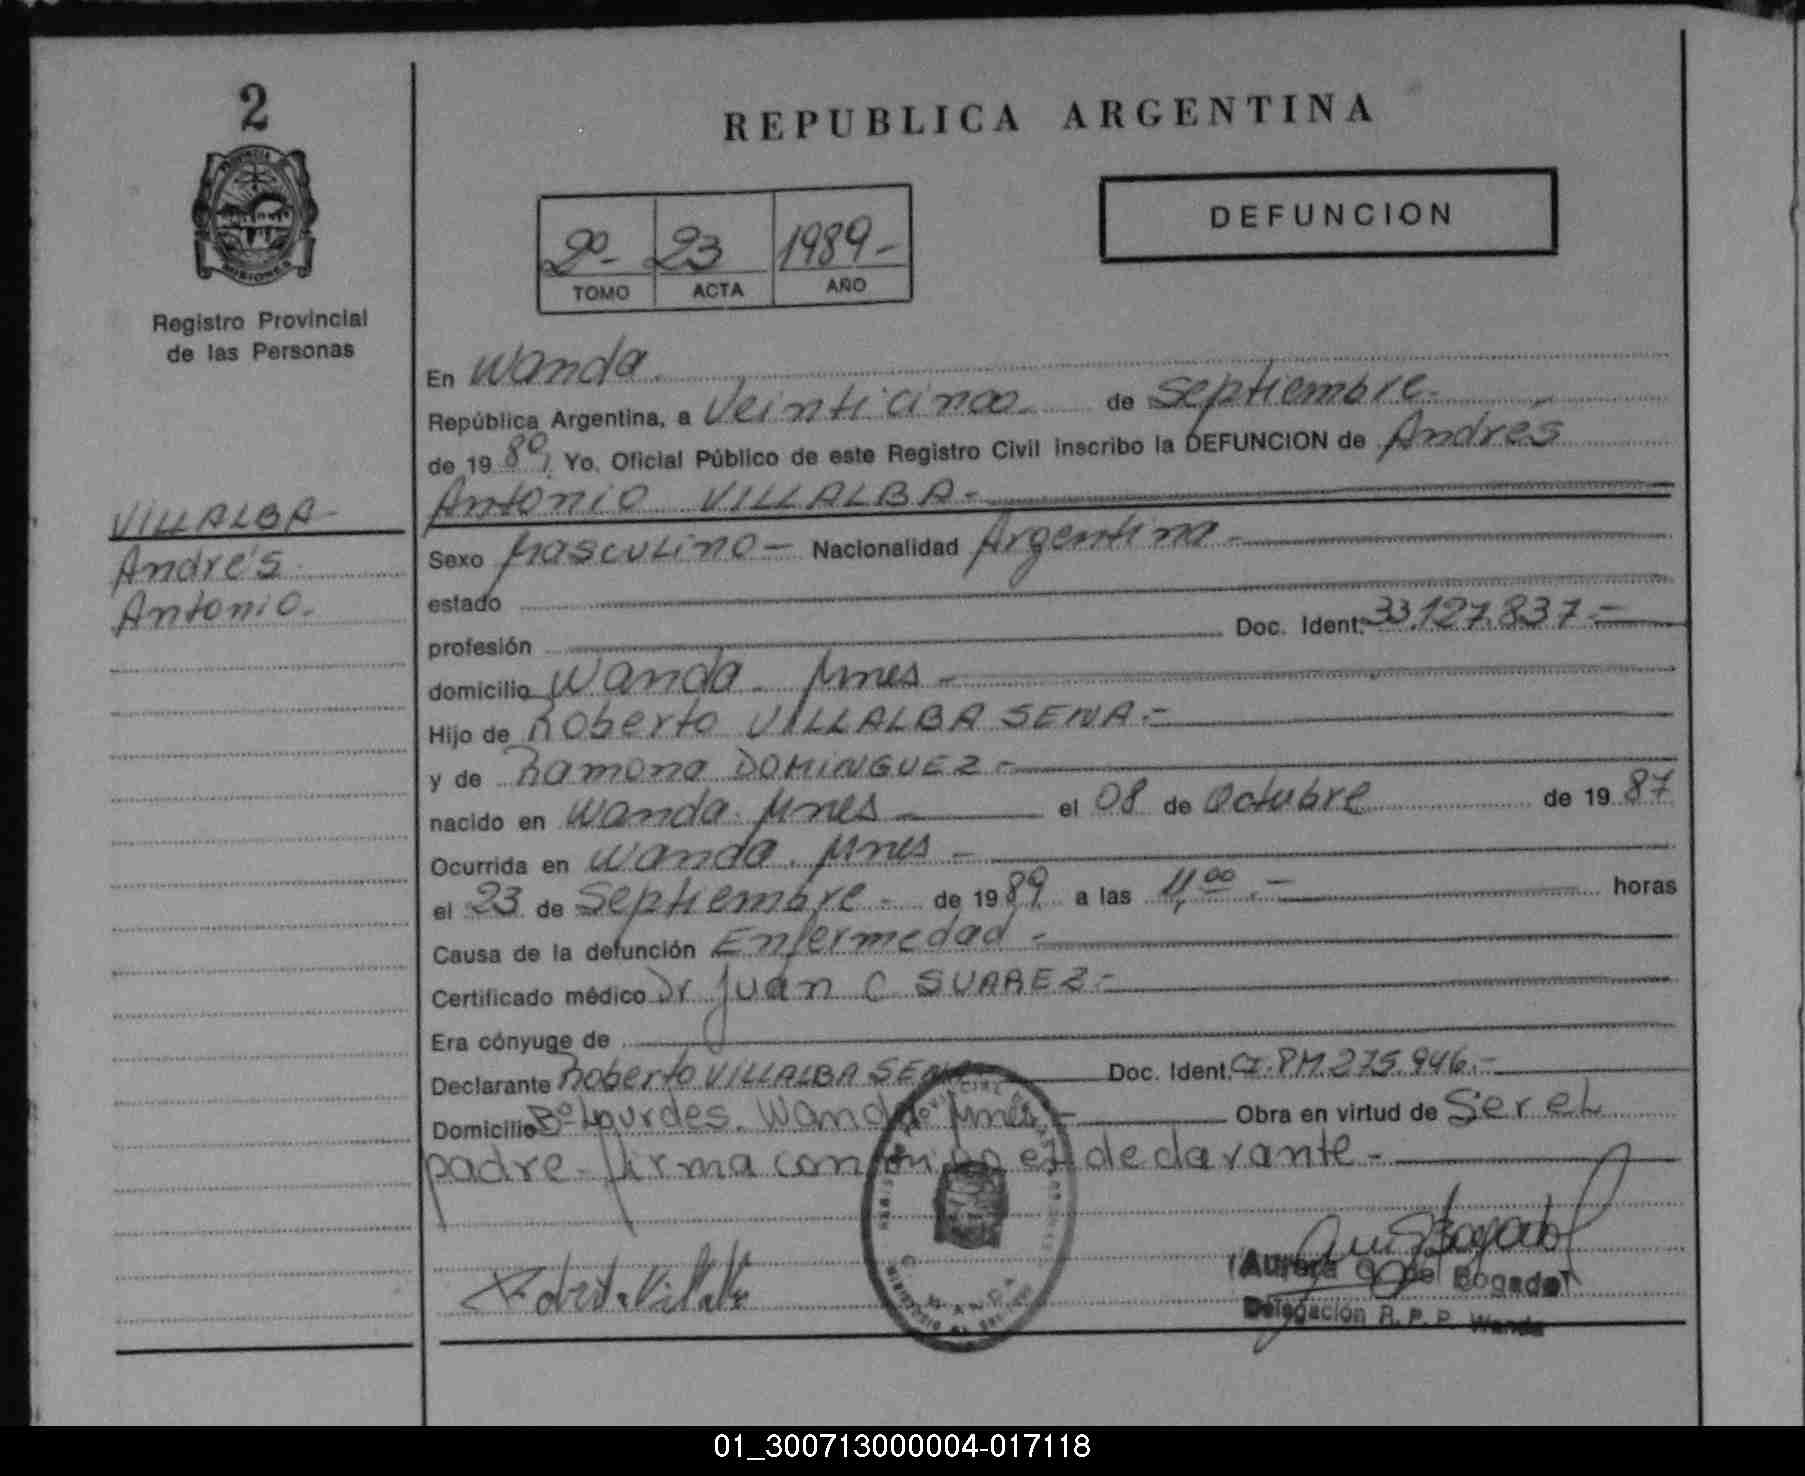 2
PROVINCIA
MISIONES
Registro Provincial
de las Personas
VILLALBA
Andrés
Antonio.
REPUBLICA ARGENTINA
2º- 23 1989-
TOMO ACTA AÑO
DEFUNCION
En Wanda.
República Argentina, a Veinticinco de septiembre.
de 19 89, Yo, Oficial Público de este Registro Civil inscribo la DEFUNCION de Andrés
Antonio VILLALBA-
Sexo Masculino - Nacionalidad Argentina -
estado
profesión Doc. Ident. 33.127.837.-
domicilio Wanda. Mnes -
Hijo de Roberto VILLALBA SENA.-
y de Ramona DOMINGUEZ -
nacido en Wanda. Mnes - el 08 de Octubre de 19 87
Ocurrida en Wanda. Mnes -
el 23 de Septiembre - de 19 89 a las 11,00.- horas
Causa de la defunción Enfermedad -
Certificado médico Dr Juan C SUAREZ-
Era cónyuge de
Declarante Roberto VILLALBA SENA Doc. Ident. CI.PM.275.946.-
Domicilio Bº Lourdes. Wanda Mnes - Obra en virtud de Ser el
padre - firma conmigo el declarante -
WANDA
Roberto Villalba
Aurora G. de Bogado
Delegación R. P. P. Wanda
01_300713000004-017118